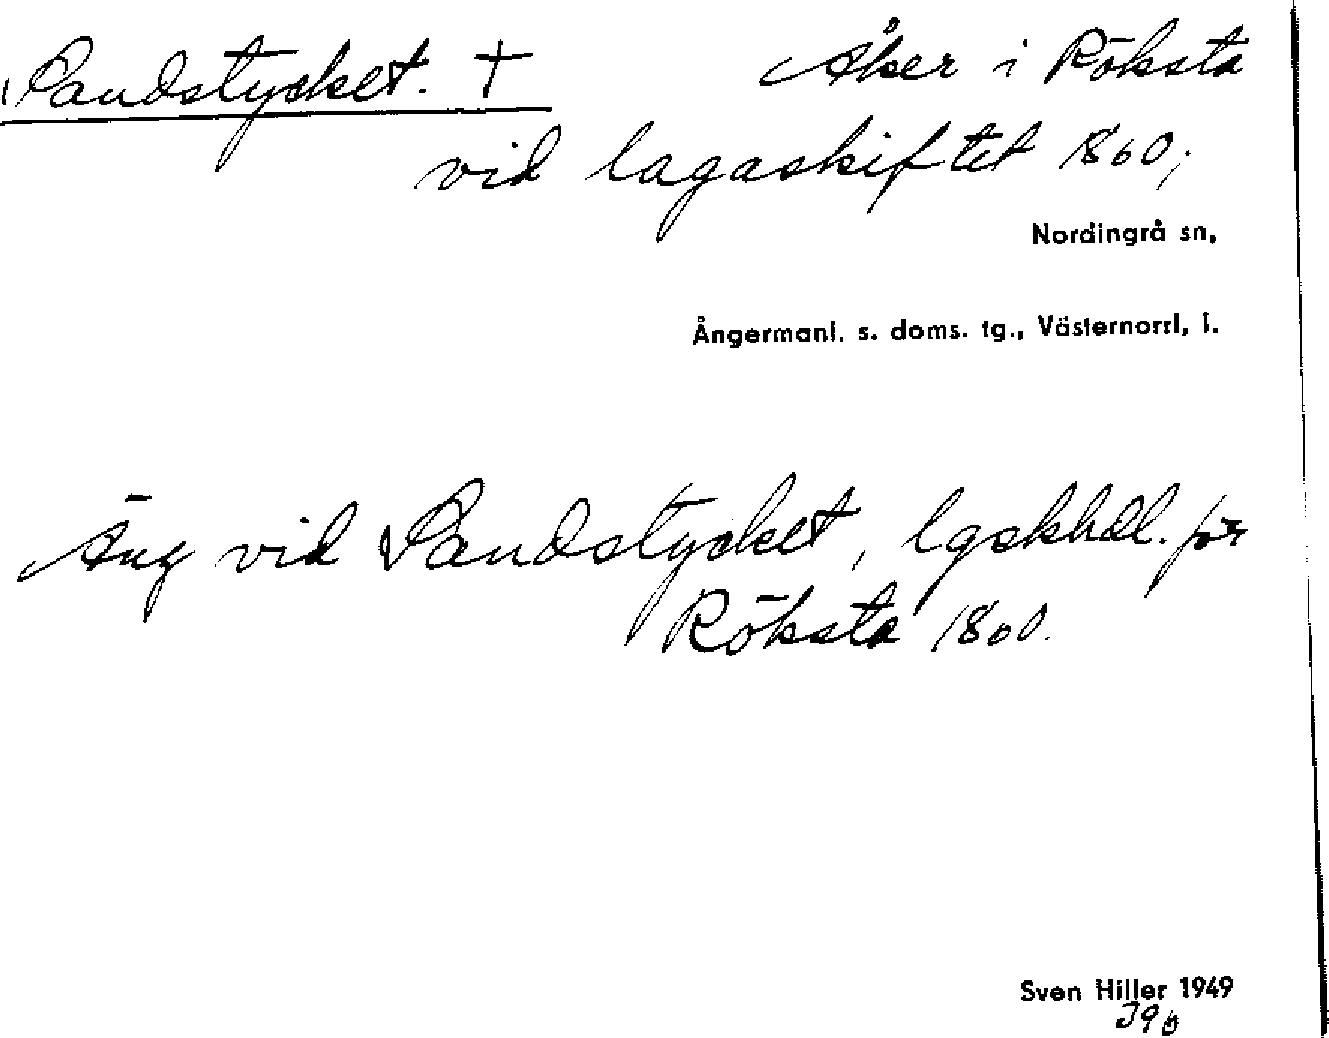 Sandstycket. + Åker i Röksta
vid lagaskiftet 1860;
Nordingrå sn,
Ångermanl. s. doms. tg., Västernorrl, l.
Äng vid Sandstycket, lgskhdl. för
Röksta 1860.
Sven Hiller 1949